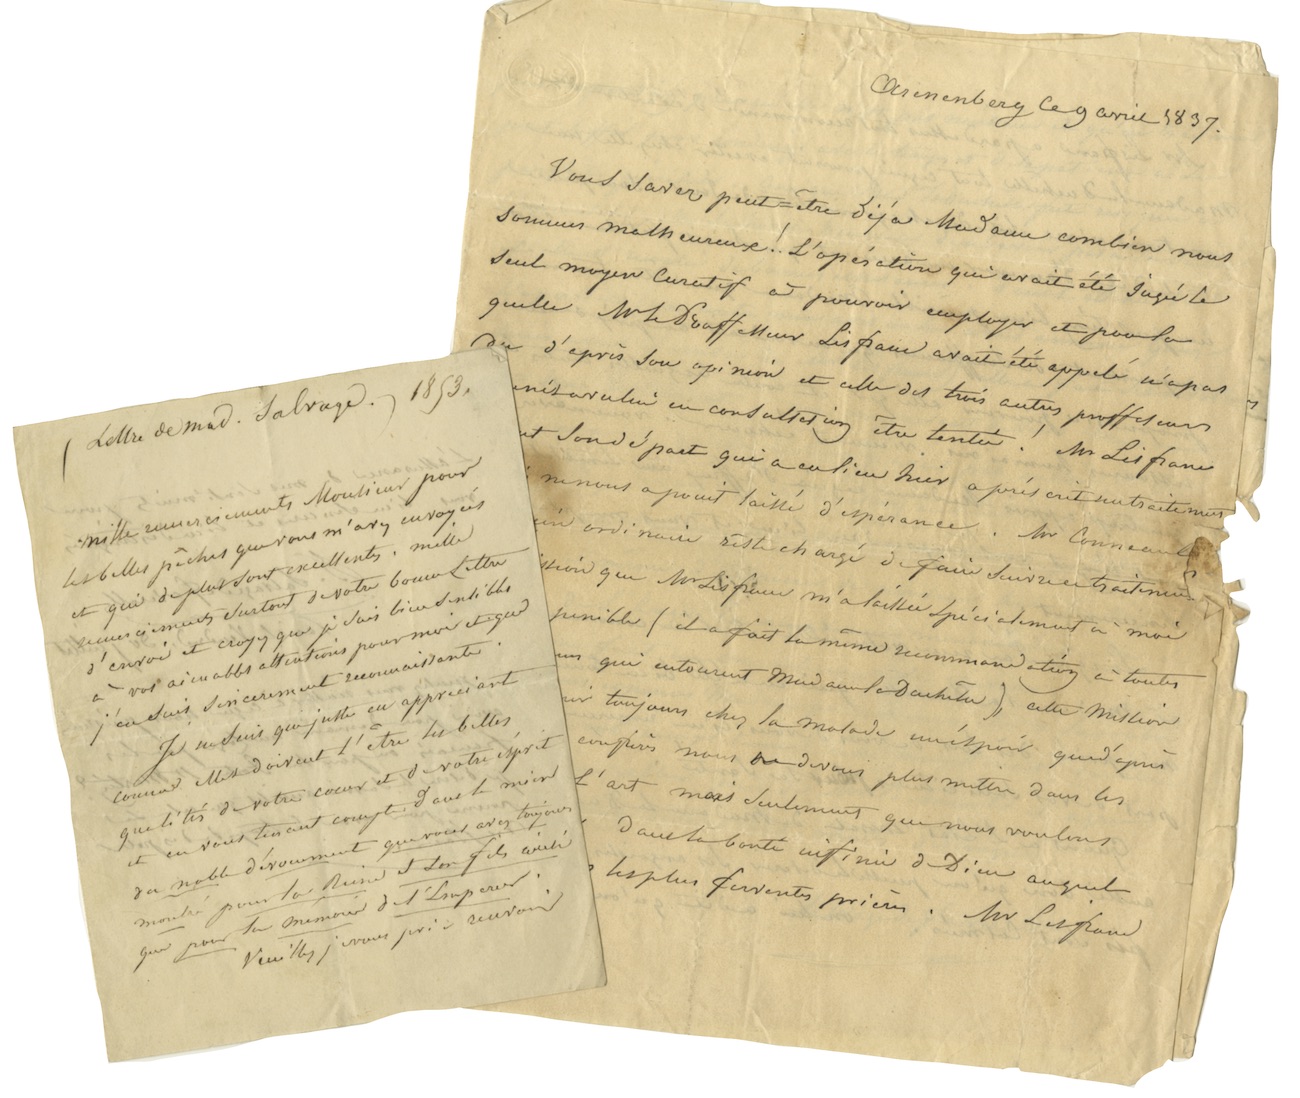 Arenenberg Ce 9 avril 1837.
Vous savez peut=être déja Madame combien nous
sommes malheureux! L'opération qui avait été jugée le
seul moyen curatif à pouvoir employer et pour la
quelle Mr le Proffesseur Lisfranc avait été appelé n'a pas
du d'après son opinion et celle des trois autres proffesseurs
en consultation être tentée! Mr Lisfranc
son départ qui a eu lieu hier a préscrit un traitement
ne nous a point laissé d'espérance. Mr Conneau
ordinaire reste chargé de faire suivre ce traitement
que Mr Lisfranc m'a laissée spécialement à moi
(il a fait la même recommandation à toutes
qui entourent Madame la Duchesse), cette mission
toujours chez la malade un éspoir que d'après
confrères nous ne devons plus mettre dans les
L'art mais seulement que nous voulons
dans la bonté infinie de Dieu auquel
les plus ferventes prières. Mr Lisfranc
Lettre de mad. Salvage. 1853.
mille remerciements Monsieur pour
les belles pêches que vous m'avez envoyées
et qui de plus sont excellentes. mille
remerciements surtout de votre bonne Lettre
d'envoi et croyez que je suis bien sensible
à vos aimables attentions pour moi et que
j'en suis sincerement reconnaissante.
Je ne suis que juste en appréciant
comme elles doivent l'être les belles
qualités de votre cœur et de votre ésprit
et en vous tenant compte dans le mien
du noble dévouement que vous avez toujours
montré pour la Reine & son fils
que pour la mémoire de l'Empereur.
Veuillez je vous prie recevoir